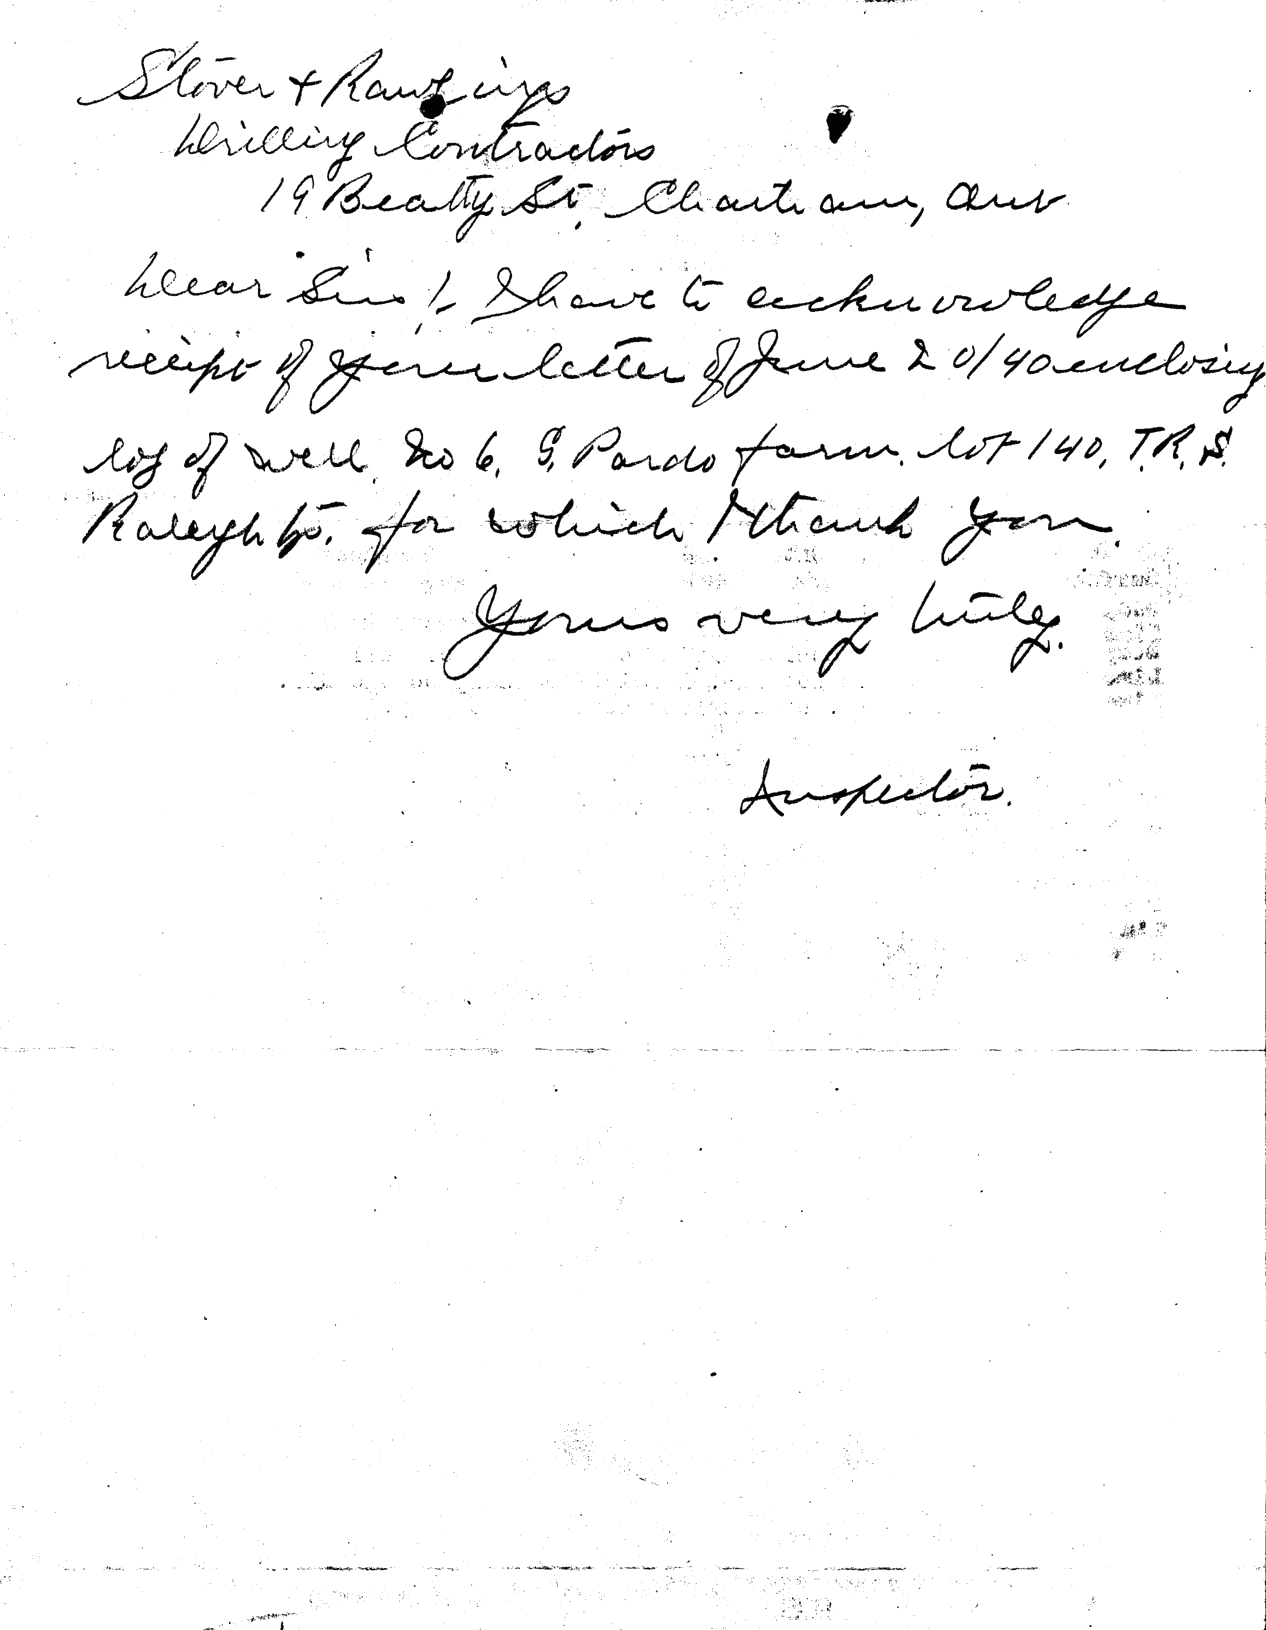 Stover + Rawlings
Drilling Contractors
19 Beatty St. Chatham, Ont
Dear Sirs :- I have to acknowledge
receipt of your letter of June 20/40 enclosing
log of well No 6, G. Pardo farm. lot 140, T.R.S.
Raleigh tp. for which I thank you.
Yours very truly.
Inspector.